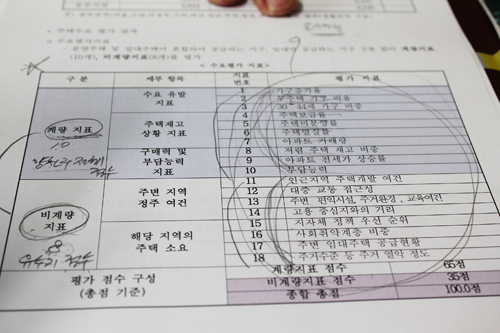 • 주택수요 평가 결과
• 수요평가지표
- 분양주택 및 임대주택이 혼합되어 공급되는 지구, 임대만 공급하는 지구 구분 없이 계량지표
(10개), 비계량지표(8개)를 평가
< 수요평가 지표 >
구 분 세부 항목 지표 번호 평가 지표
계량 지표
10
수요 유발 지표
1 가구증가율
2 무주택 가구 비율
3 30~44세 가구 비중
주택재고 상황 지표
4 주택보급률
5 주택미분양률
6 주택멸실률
7 아파트 거래량
구매력 및 부담능력 지표
8 저렴 주택 재고 비중
9 아파트 전세가 상승률
10 부담능력
비계량 지표
8
주변 지역 정주 여건
11 인근지역 주택개발 여건
12 대중 교통 접근성
13 주변 편익시설, 주거환경, 교육여건
14 고용 중심지와의 거리
해당 지역의 주택 소요
15 지자체 정책 우선 순위
16 사회취약계층 비중
17 주변 임대주택 공급현황
18 주거수준 등 주거 열악 정도
평가 점수 구성
(총점 기준)
계량지표 점수 65점
비계량지표 점수 35점
종합 총점 100.0점